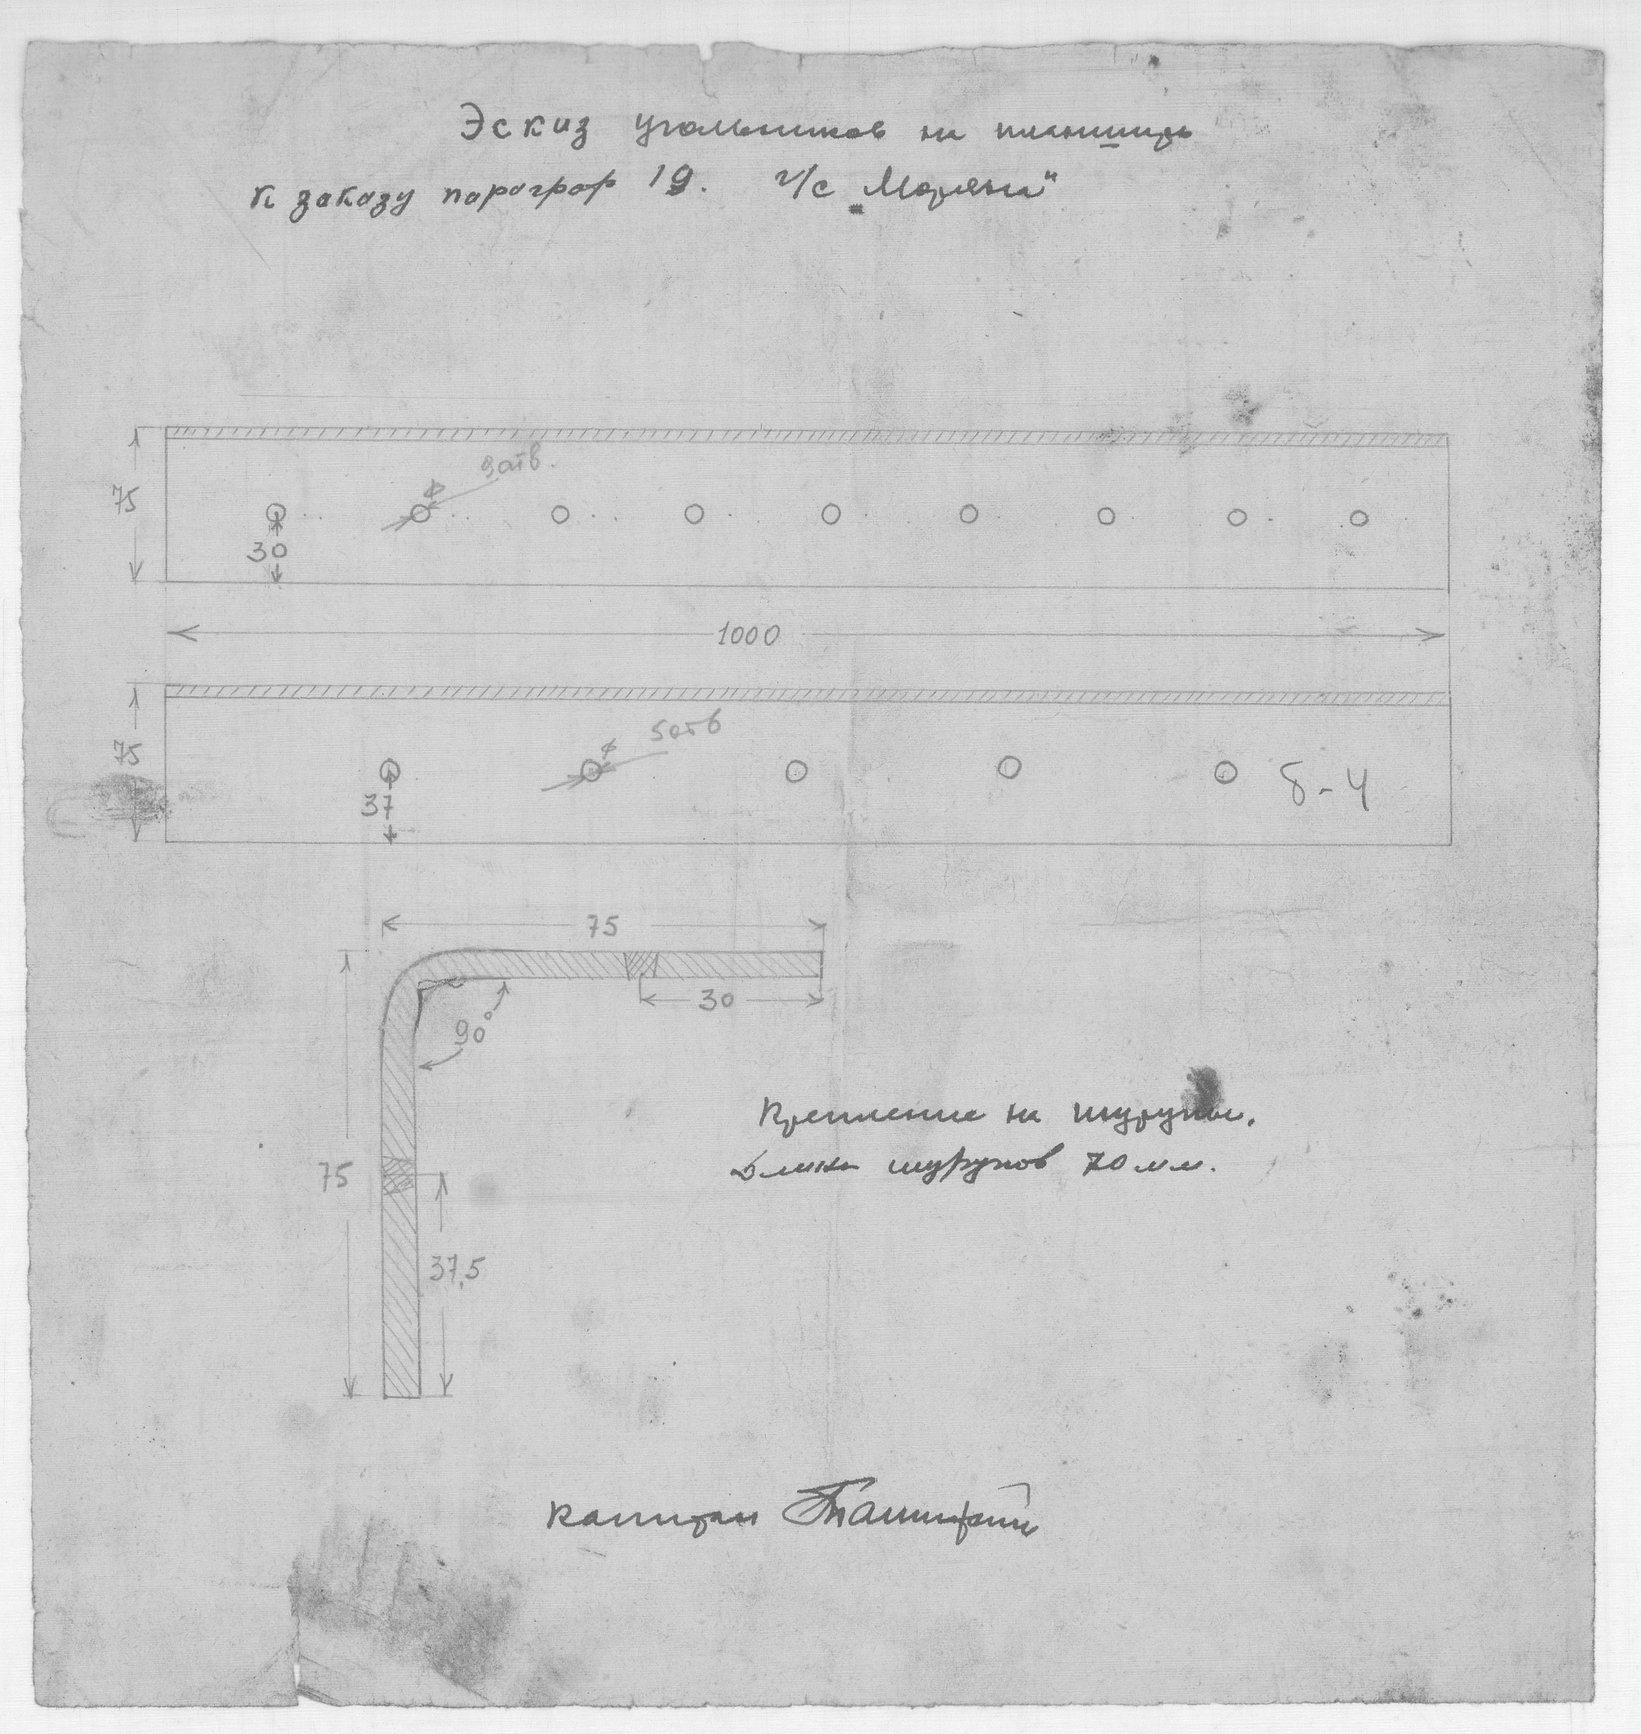 Эскиз угольников на планширь
к заказу параграф 19. г/с „Моряна"
9 отв.
75
30
1000
5 отв
75
37
δ-4
75
30
90°
Крепление на шурупы.
Длина шурупов 70 мм.
75
37,5
капитан